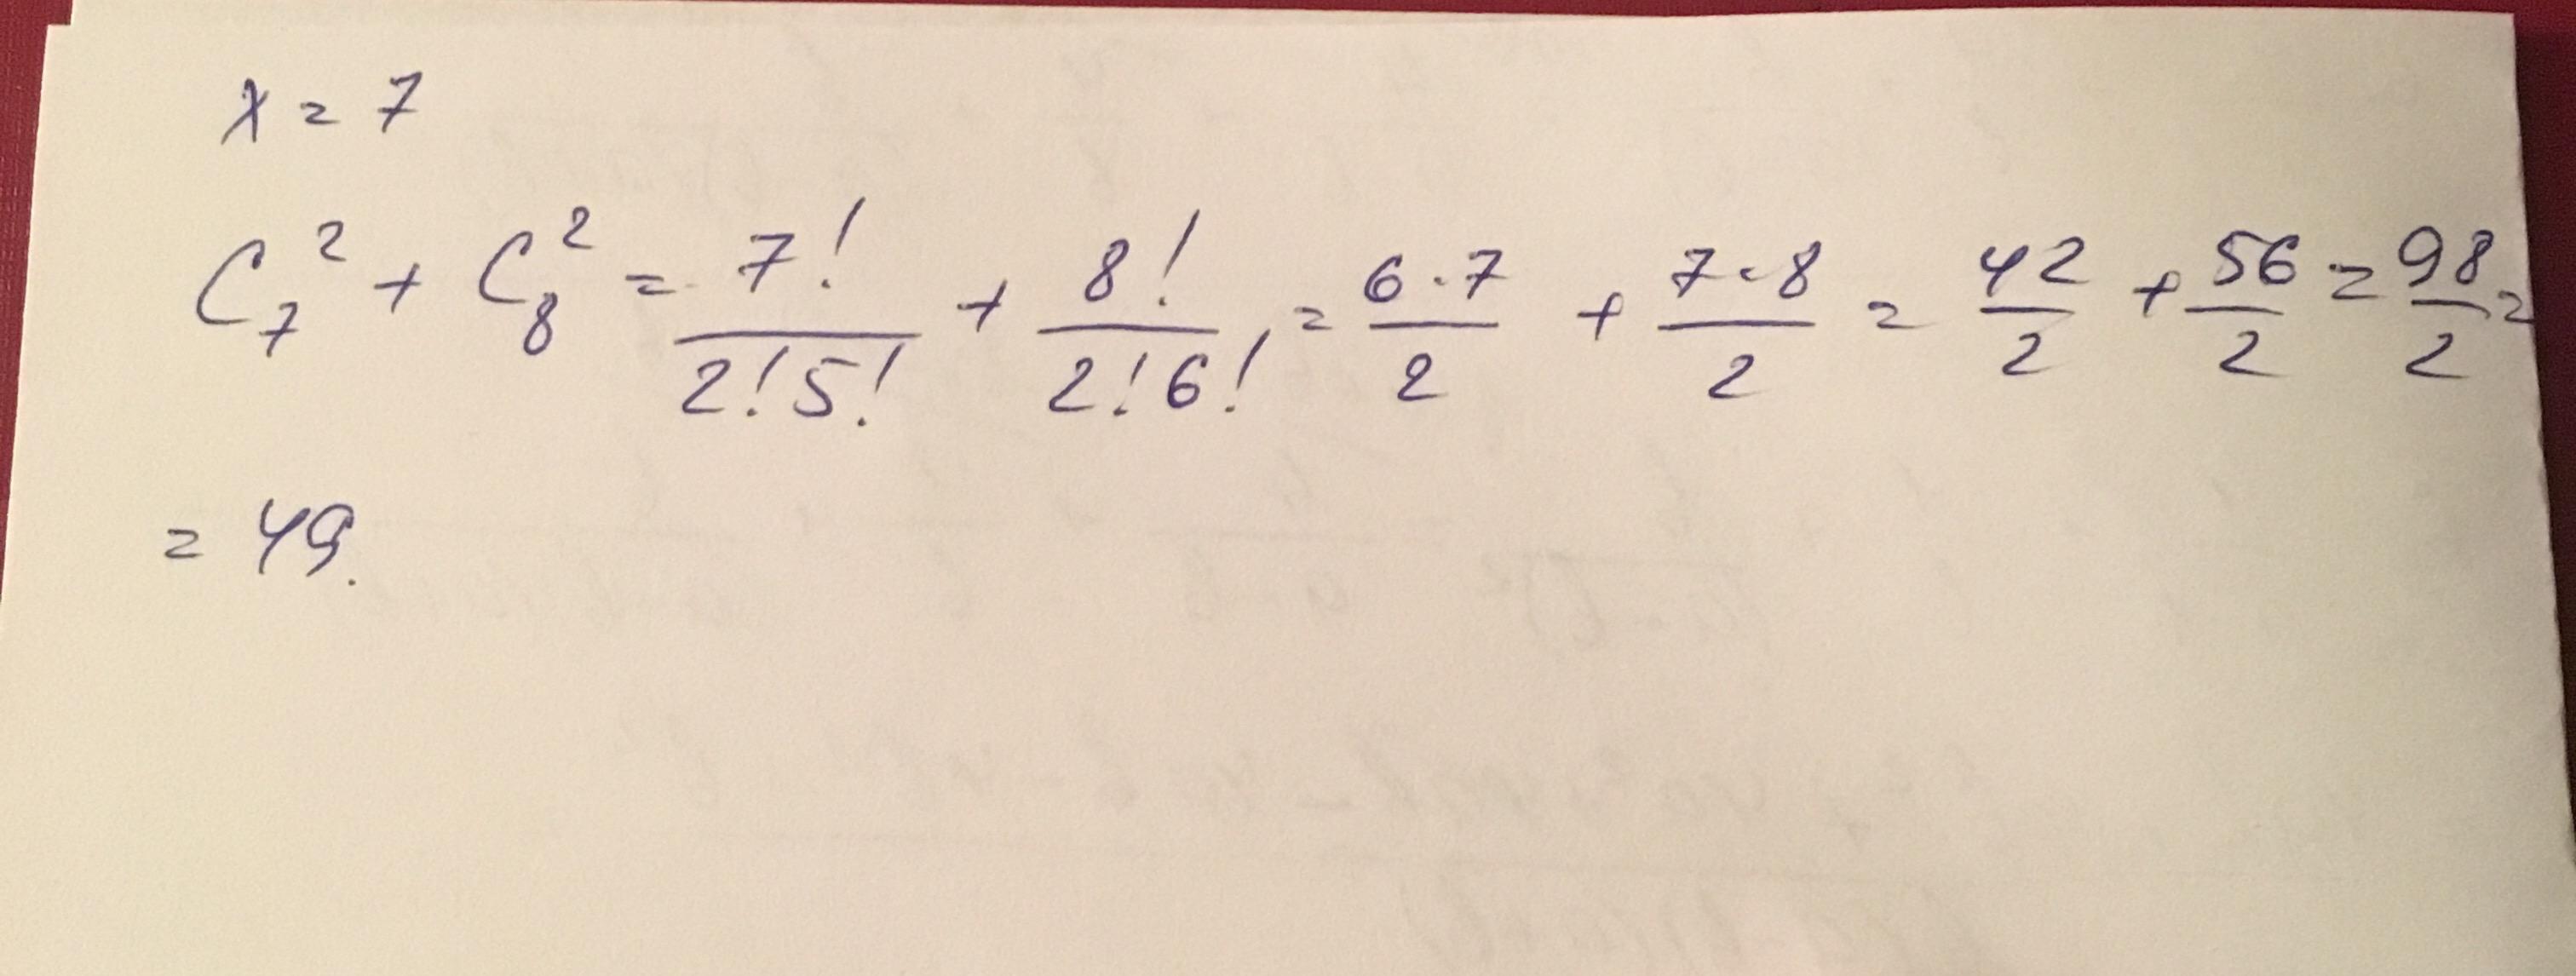 x = 7
C₇² + C₈² = 7!/(2!5!) + 8!/(2!6!) = 6·7/2 + 7·8/2 = 42/2 + 56/2 = 98/2 =
= 49.